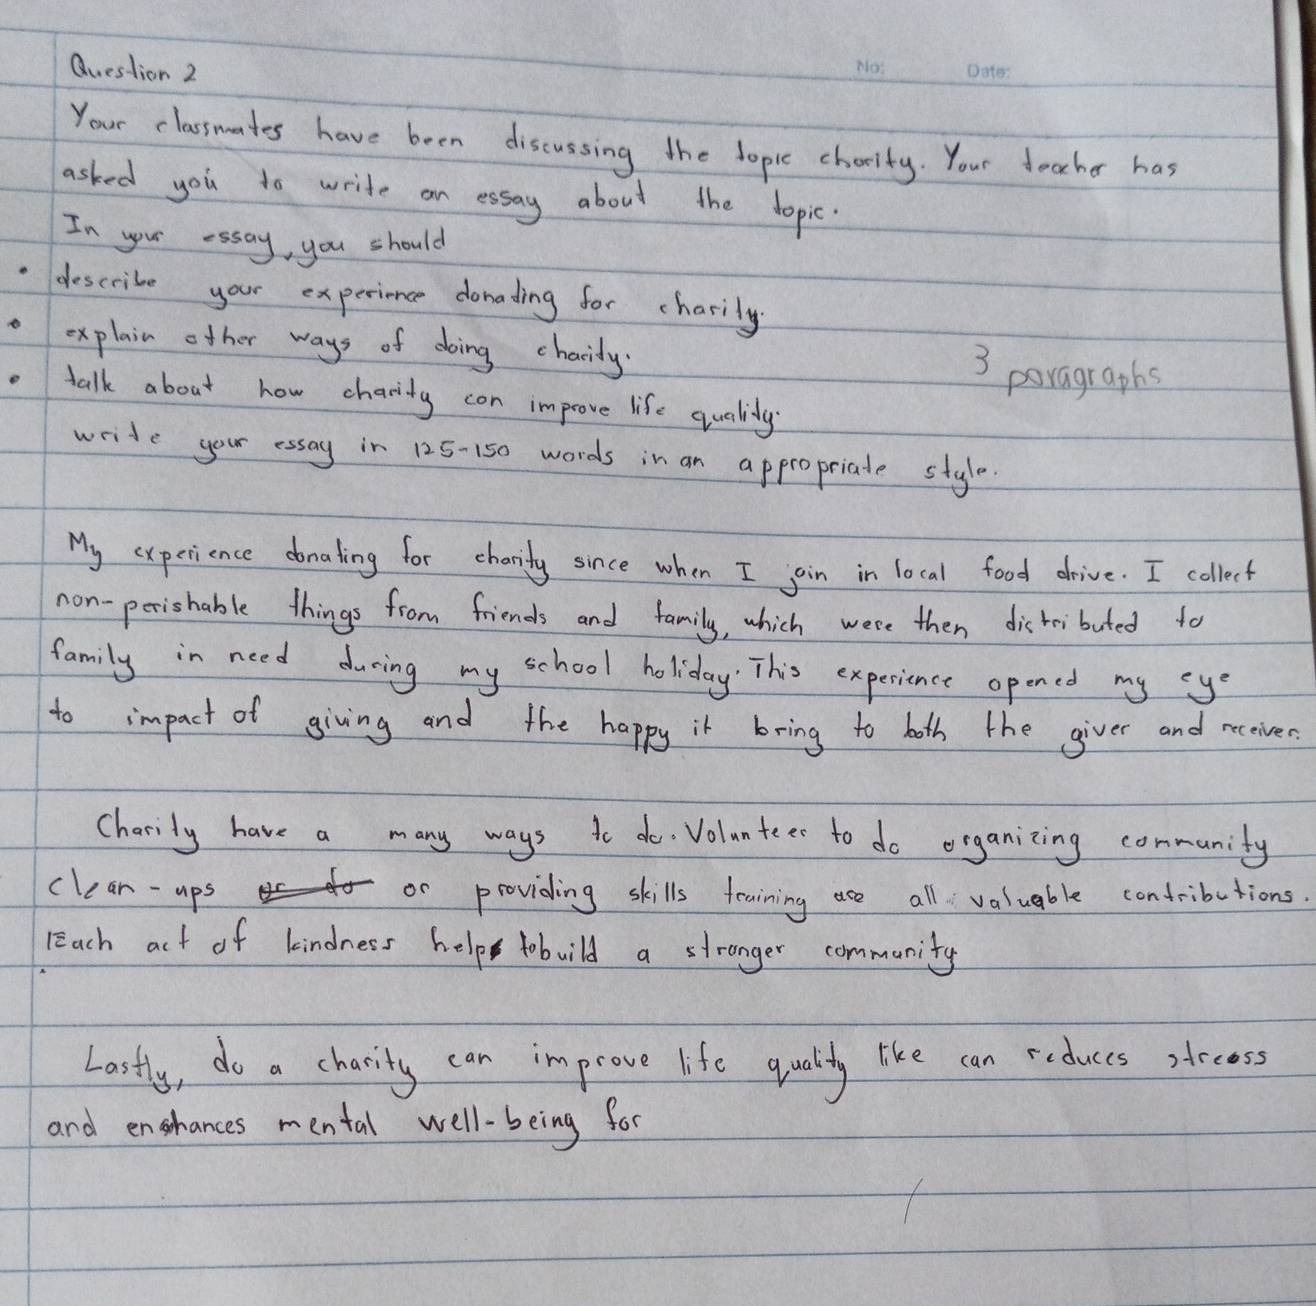 No: Date:
Question 2
Your classmates have been discussing the topic charity. Your teacher has
asked you to write an essay about the topic.
In your essay, you should
• describe your experience donating for charity.
• explain other ways of doing charity.
• talk about how charity can improve life quality.
3 paragraphs
write your essay in 125-150 words in an appropriate style.
My experience donating for charity since when I join in local food drive. I collect
non-perishable things from friends and family, which were then distributed to
family in need during my school holiday. This experience opened my eye
to impact of giving and the happy it bring to both the giver and receiver.
Charity have a many ways to do. Volunteer to do organizing community
clean-ups or do or providing skills training are all valuable contributions.
Each act of kindness help to build a stronger community
Lastly, do a charity can improve life quality like can reduces stress
and enhances mental well-being for